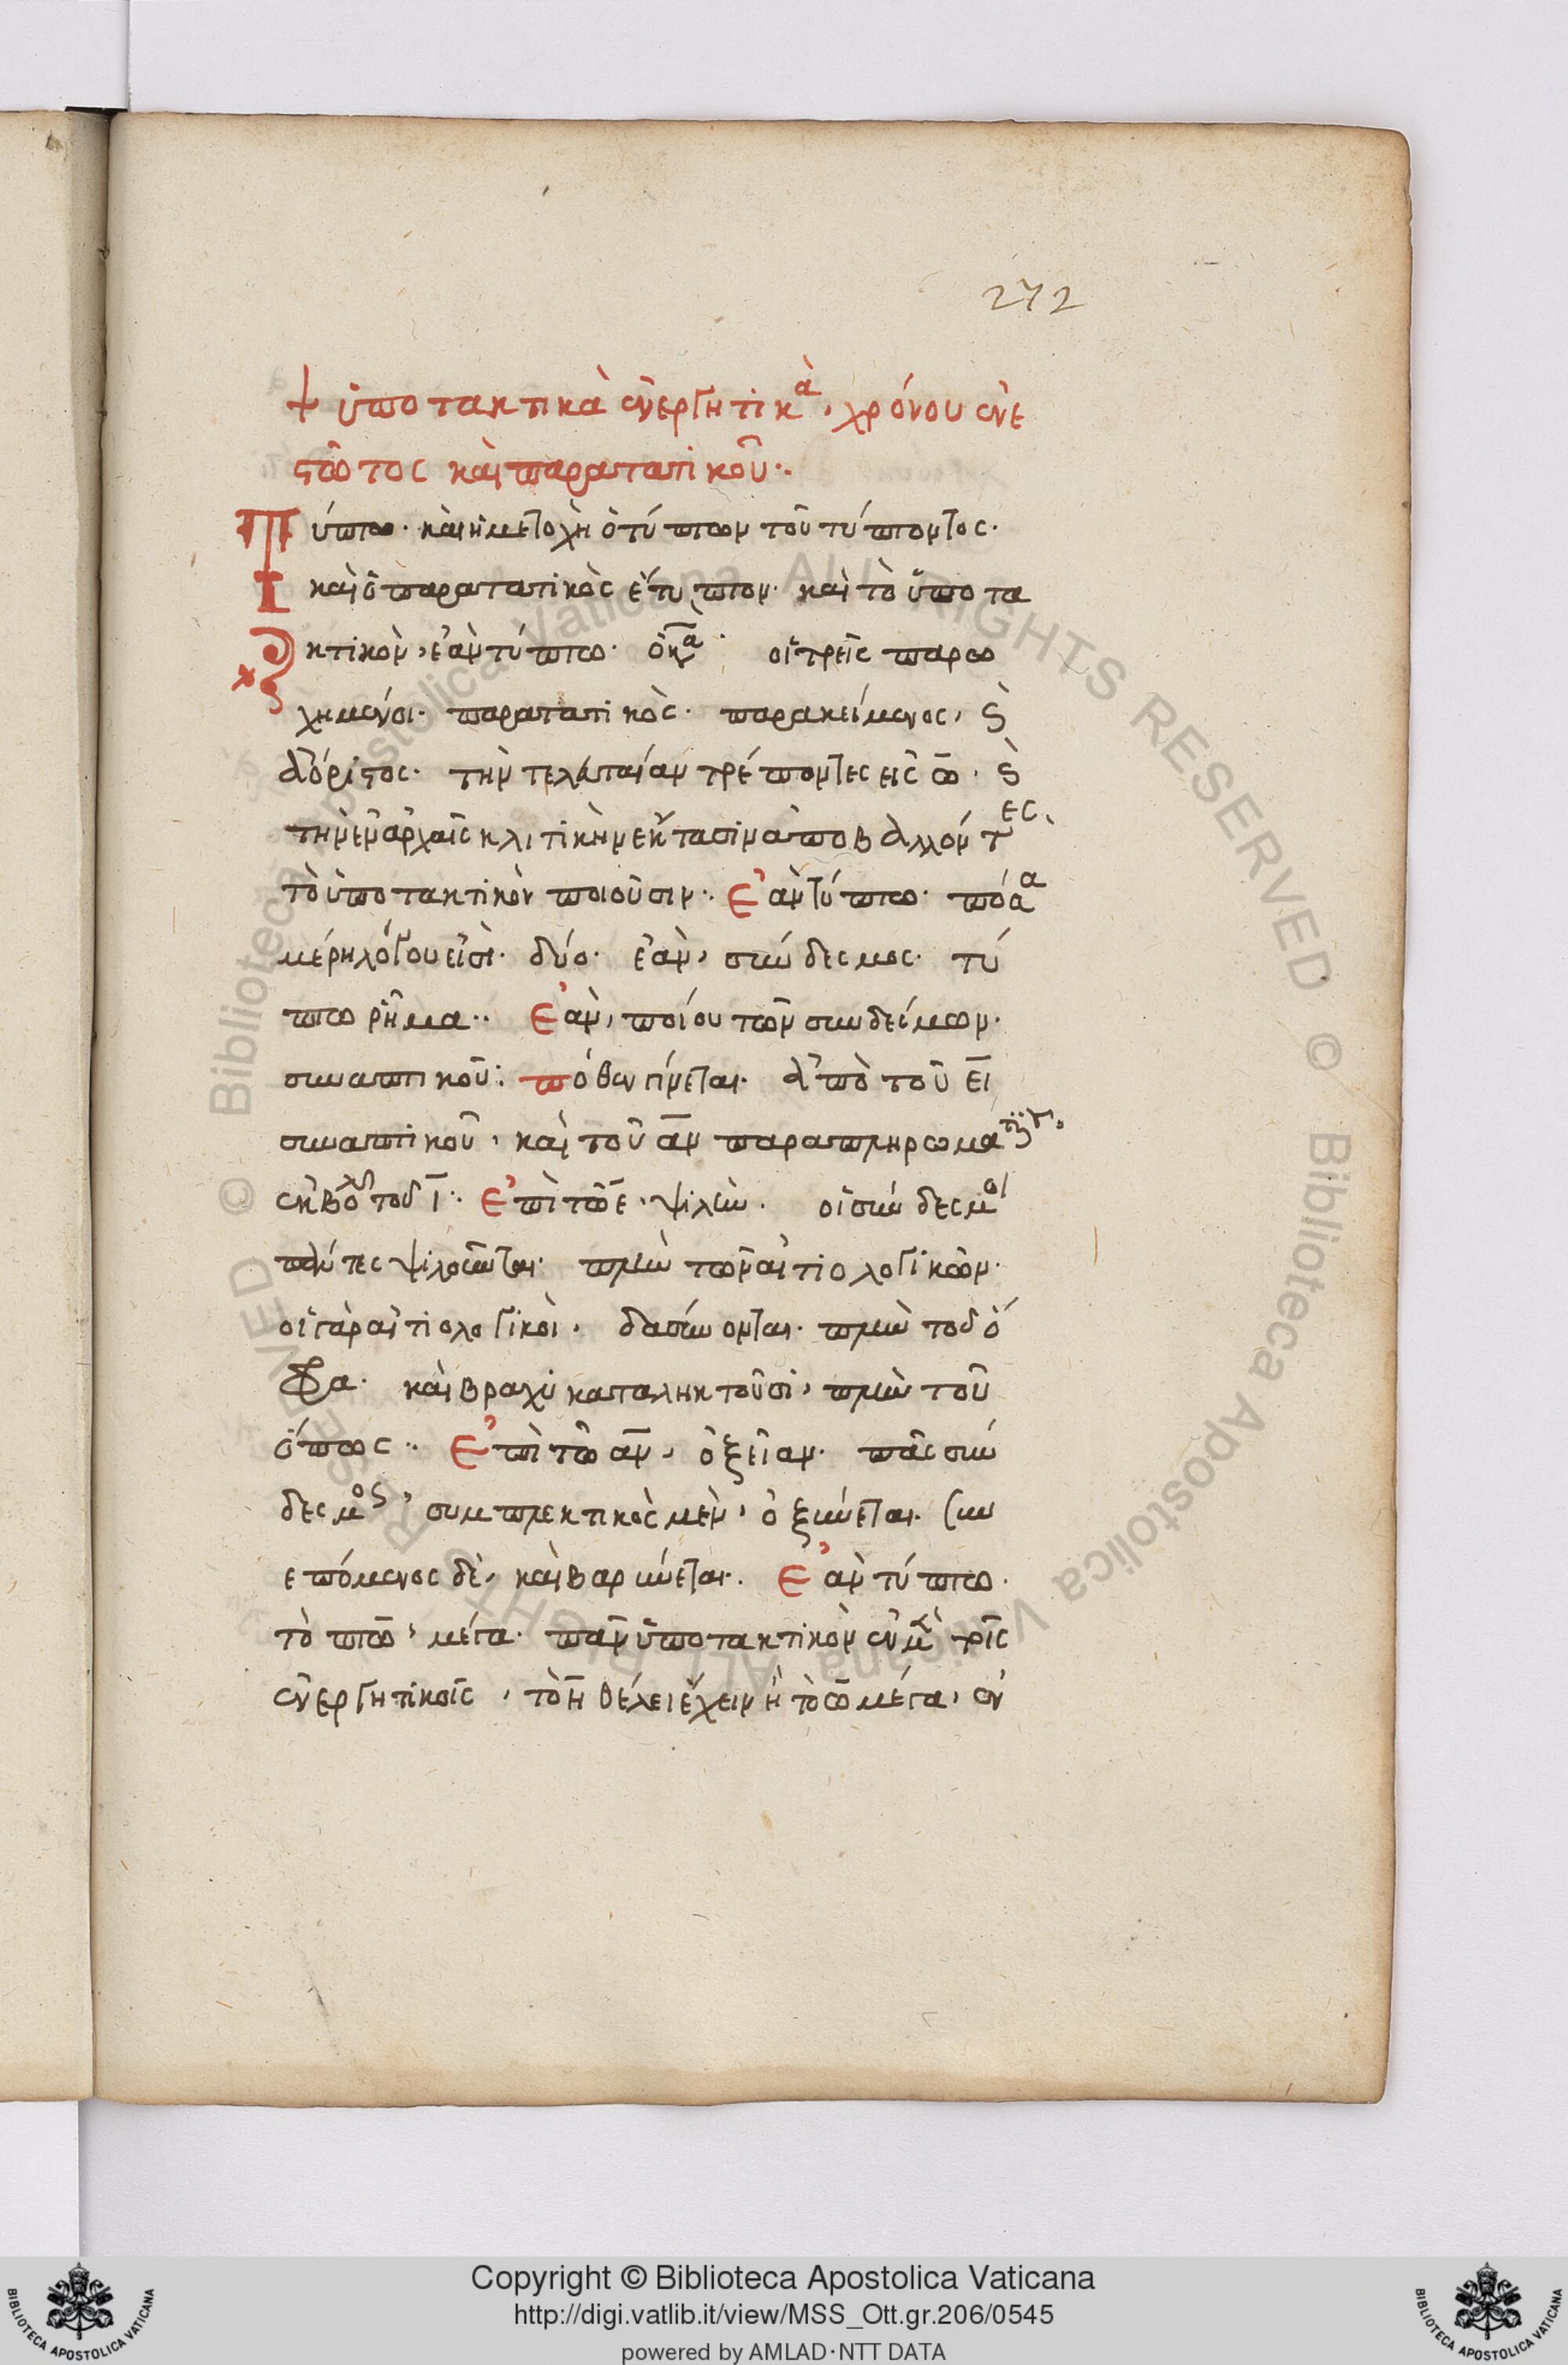 272
ὑποτακτικὰ ἐνεργητικὰ, χρόνου ἐνε
στῶτος καὶ παρατατικοῦ..
Τύπτω. καὶ ἡ μετοχὴ ὁ τύπτων τοῦ τύπτοντος.
καὶ ὁ παρατατικὸς ἔτυπτον. καὶ τὸ ὑποτα
κτικὸν, ἐὰν τύπτω. οἱ τρεῖς παρω
χημένοι. παρατατικὸς. παρακείμενος, ϗ
ἀόριστος. τὴν τελευταίαν τρέποντες εἰς ω. ϗ
τὴν ἐν ἀρχαῖς κλιτικὴν ἔκτασιν ἀποβάλλοντες.
τὸ ὑποτακτικὸν ποιοῦσιν. Ἐὰν τύπτω. πόσα
μέρη λόγου εἰσὶ. δύο. ἐὰν, σύνδεσμος. τύ
πτω ῥῆμα.. Ἐὰν, ποίου τῶν συνδέσμων.
συναπτικοῦ: πόθεν γίνεται. ἀπὸ τοῦ ει
συναπτικοῦ, καὶ τοῦ αν παραπληρωματικοῦ.
ἐκβολῇ τοῦ ι. Ἐπὶ τῶ ε. ψιλὴν. οἱ σύνδεσμοι
πάντες ψιλοῦνται. πλὴν τῶν αἰτιολογικῶν.
οἱ γὰρ αἰτιολογικοὶ. δασύνονται. πλὴν τοῦ ὄ
φρα. καὶ βραχυκαταληκτοῦσι, πλὴν τοῦ
ὅπως.. Ἐπὶ τῶ αν, ὀξεῖαν. πᾶς σύν
δεσμος, συμπλεκτικὸς μὲν, ὀξύνεται. συν
επόμενος δὲ, καὶ βαρύνεται. Ἐὰν τύπτω.
τὸ πτω, μέγα. πᾶν ὑποτακτικὸν ἐν μὲν τοῖς
ἐνεργητικοῖς, τὸ η θέλει ἔχειν ἢ τὸ ω μέγα, ἐν
Copyright © Biblioteca Apostolica Vaticana
http://digi.vatlib.it/view/MSS_Ott.gr.206/0545
powered by AMLAD·NTT DATA